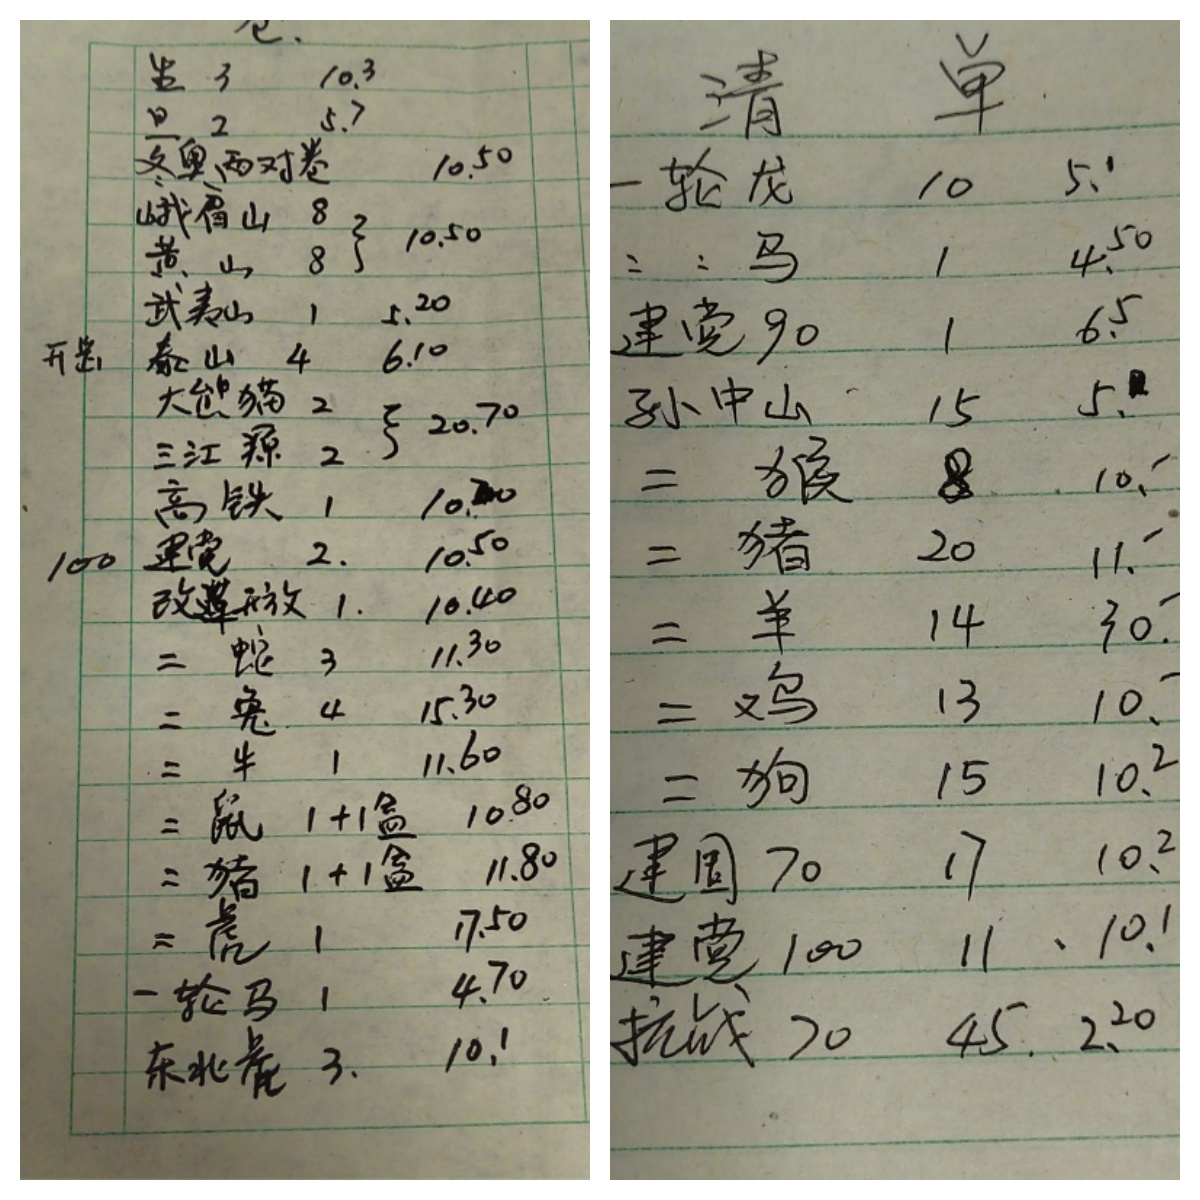 卷.
生 3 10.3
旦 2 5.7
冬奥两对卷 10.50
峨眉山 8
黄山 8 } 10.50
武夷山 1 5.20
泰山 4 6.10
大熊猫 2
三江源 2 } 20.70
高铁 1
100 建党 2. 10.50
改革开放 1. 10.40
= 蛇 3 11.30
= 兔 4 15.30
= 牛 1 11.60
= 鼠 1+1盒 10.80
= 猪 1+1盒 11.80
= 虎 1 17.50
一轮马 1 4.70
东北虎 3. 10.1
清单
一轮龙 10 5.1
: : 马 1 4.50
建党90 1 6.5
孙中山 15 5.
= 猴 8 10.-
= 猪 20 11.-
= 羊 14 30.-
= 鸡 13 10.-
= 狗 15 10.2
建国70 17 10.2
建党100 11、10.1
抗战70 45. 2.20